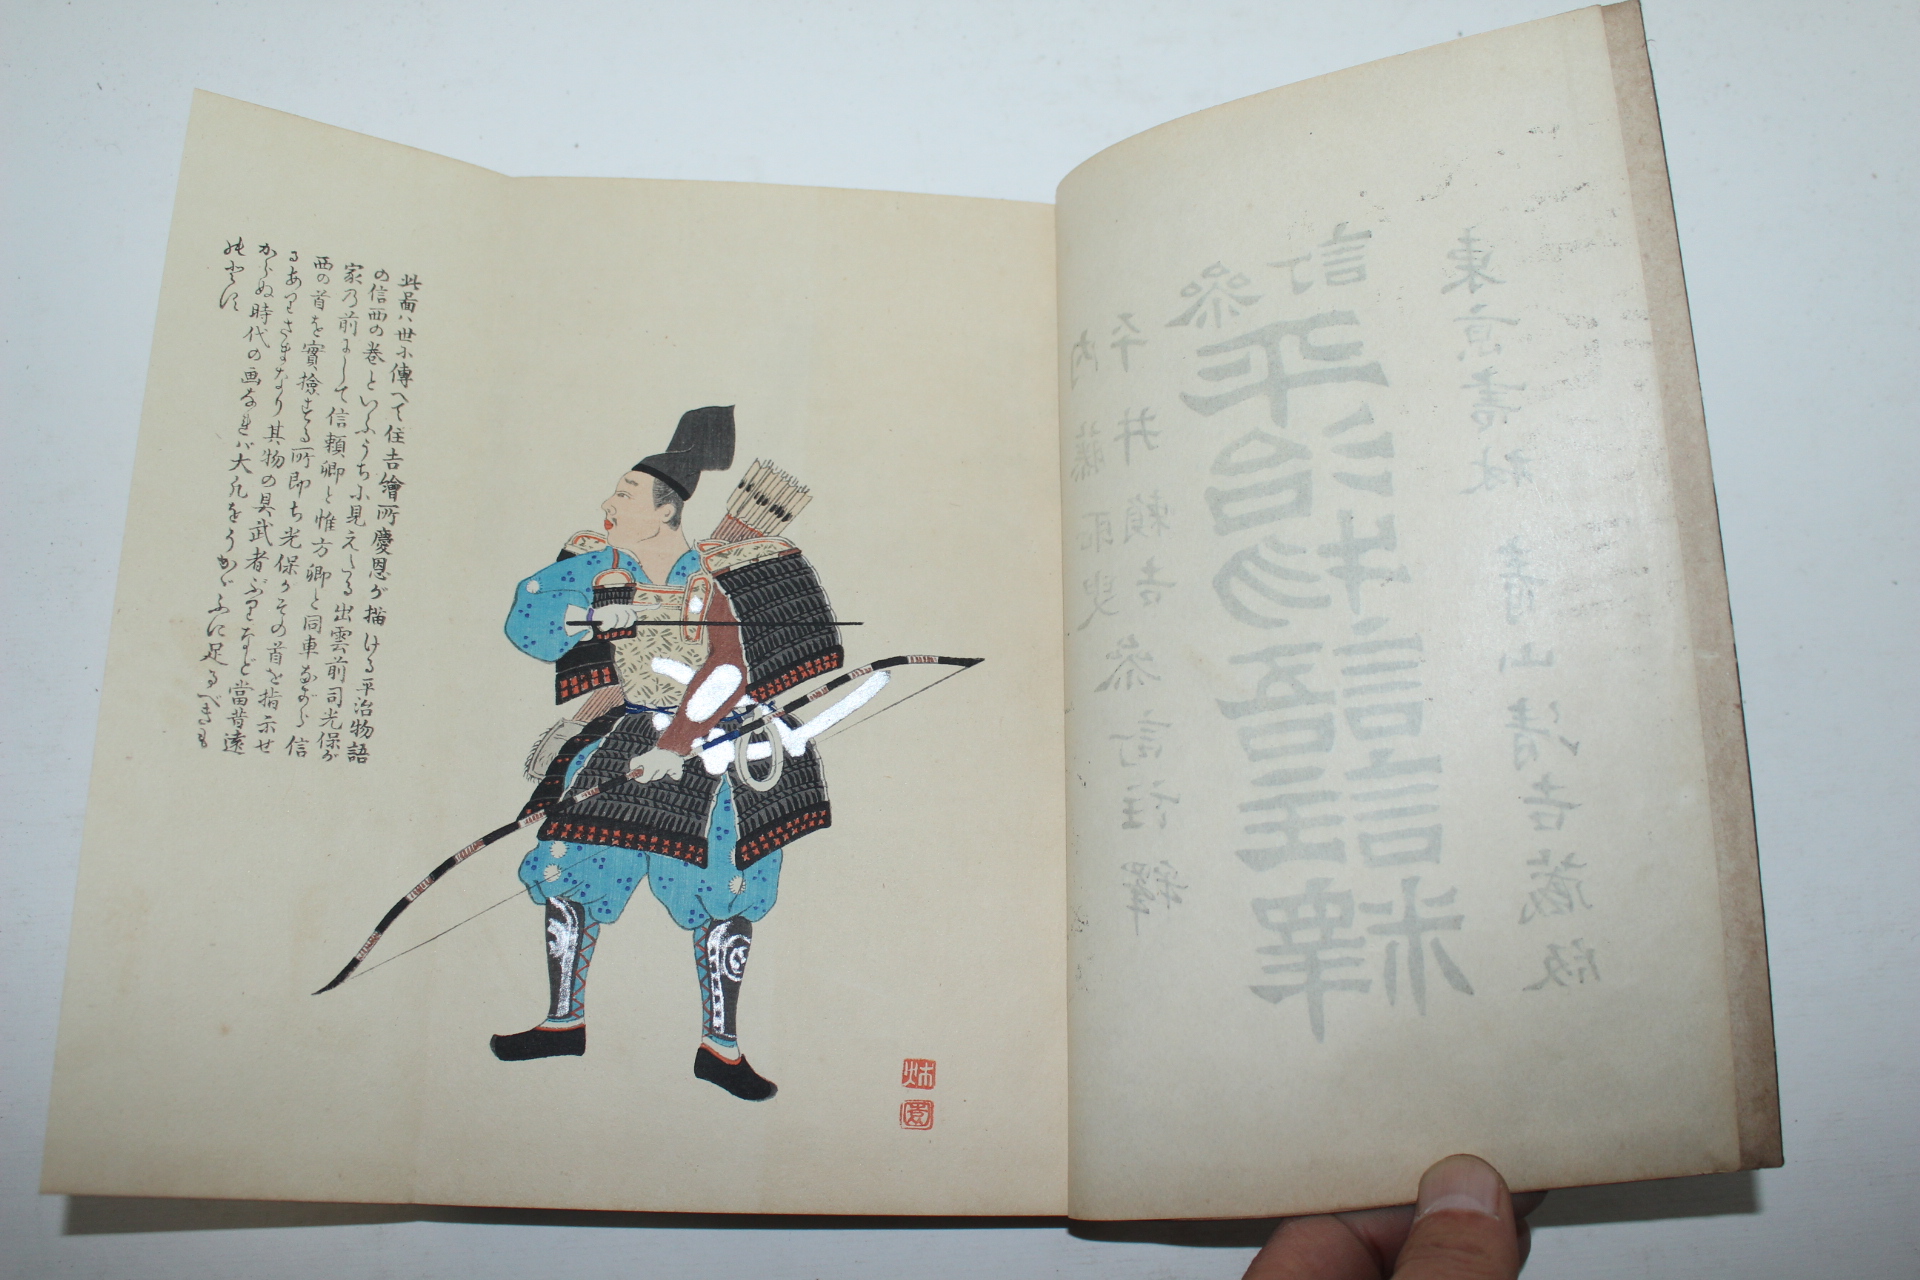 此圖ハ世に傳へて住吉繪所慶恩が描ける平治物語
の信西の巻といふうちに見えたる出雲前司光保が
家乃前にして信頼卿と惟方卿と同車ながら信
西の首を實撿する所即ち光保がその首を指示せ
るありさまなり其物の具武者ぶりなど當昔遠
からぬ時代の画なれバ大凡をうかがふに足るべきも
のとす
東京書林 青山清吉藏版
參訂
平治物語註釋
平井頼吉參訂註釋
内藤耻叟